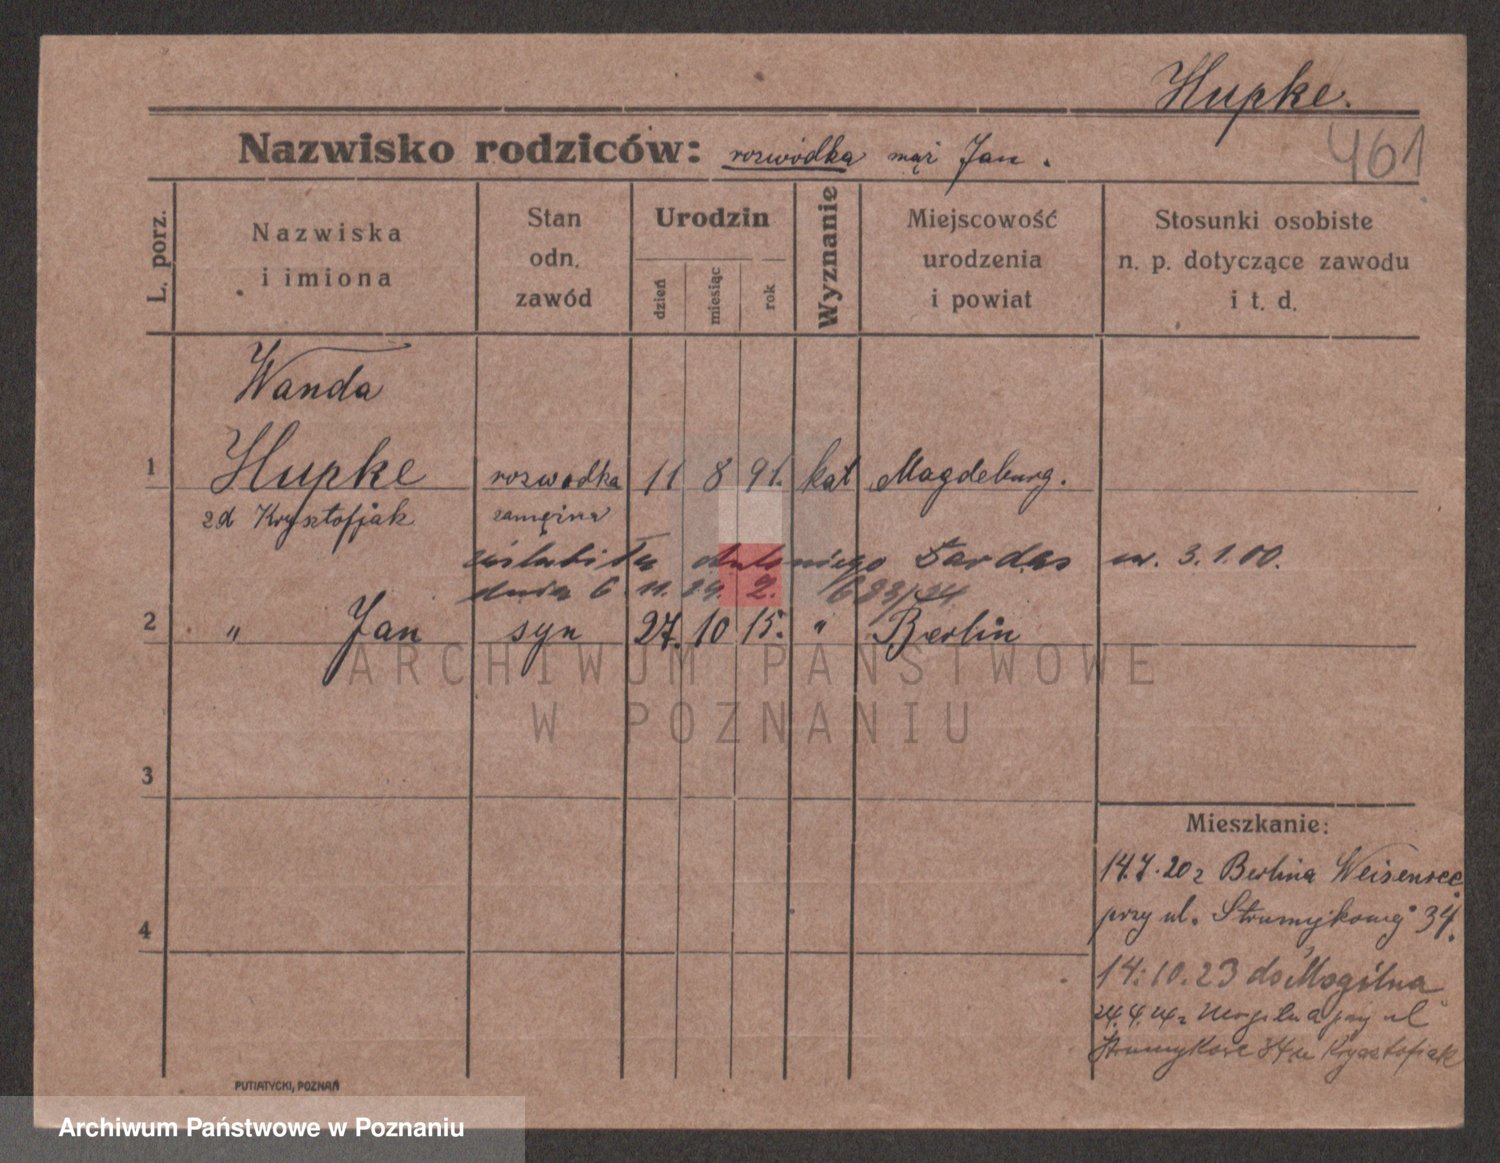 Hupke.
461
Nazwisko rodziców: rozwódka mąż Jan.
L. porz.
Nazwiska
i imiona
Stan
odn.
zawód
Urodzin
dzień
miesiąc
rok
Wyznanie
Miejscowość
urodzenia
i powiat
Stosunki osobiste
n. p. dotyczące zawodu
i t. d.
Wanda
1 Hupke rozwodka 11 8 91. kat Magdeburg.
zd Krysztofjak zamężna
zaślubiła Antoniego Bardas ur. 3.1.00.
dnia 6.11.24. 2. 683/24
2 " Jan syn 27. 10 15. " Berlin
ARCHIWUM PAŃSTWOWE
W POZNANIU
3
Mieszkanie:
14.7.20 z Berlina Weisensee
przy ul. Strumykowej 34.
4
14.10.23 do Mogilna
24.4.24 z Mogilna przy ul
Strumykowe 34 u Krysztofiak
PUTIATYCKI, POZNAŃ
Archiwum Państwowe w Poznaniu